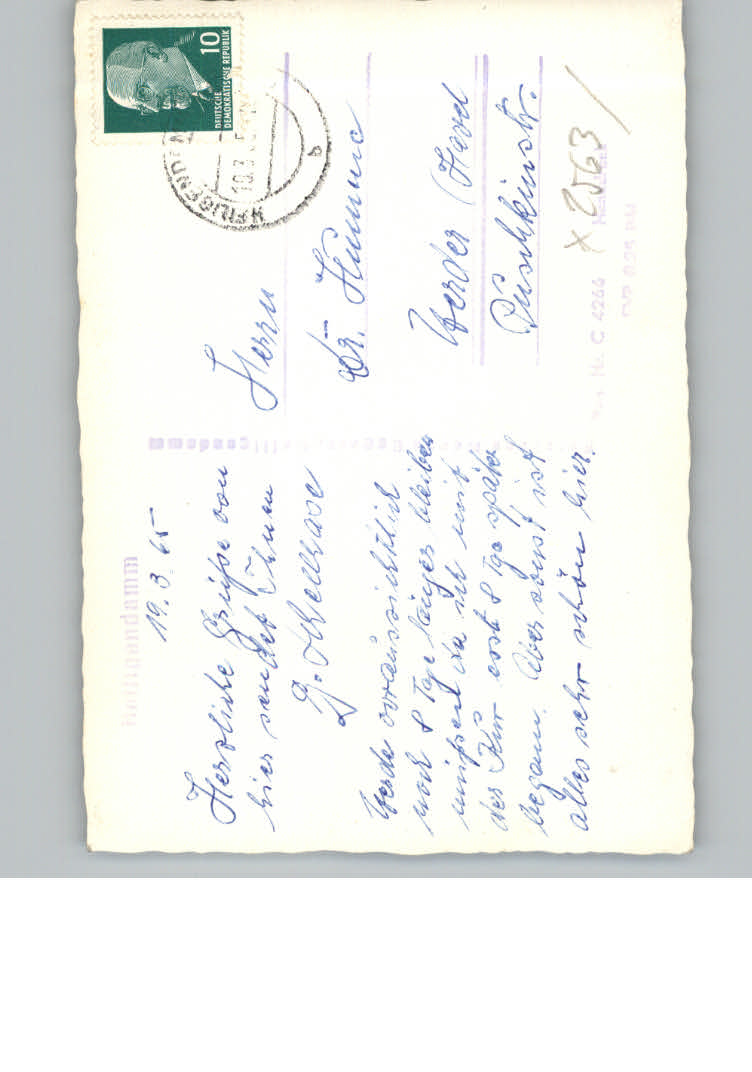 Heiligendamm
19.3.65
Herzliche Grüße von
hier sendet Ihnen
Werde voraussichtlich
noch 8 Tage länger bleiben
müßen da ich mit
der Kur erst 8 Tge später
begann. Aber sonst ist
alles sehr schön hier.
10
DEUTSCHE
DEMOKRATISCHE REPUBLIK
HEILIGENDAMM
19.3.
b
Herrn
Dr.
Werder (Havel
Puschkinstr.
x 2563 /
C 4266